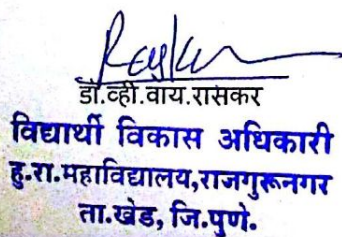 डॉ.व्ही.वाय.रासकर
विद्यार्थी विकास अधिकारी
हु.रा.महाविद्यालय,राजगुरूनगर
ता.खेड, जि.पुणे.